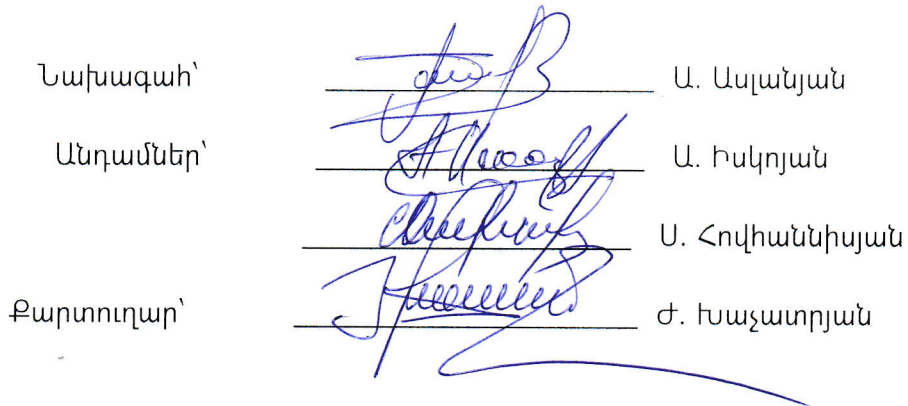 Նախագահ՝ Ա. Ասլանյան
Անդամներ՝ Ա. Իսկոյան
Ս. Հովհաննիսյան
Քարտուղար՝ Ժ. Խաչատրյան